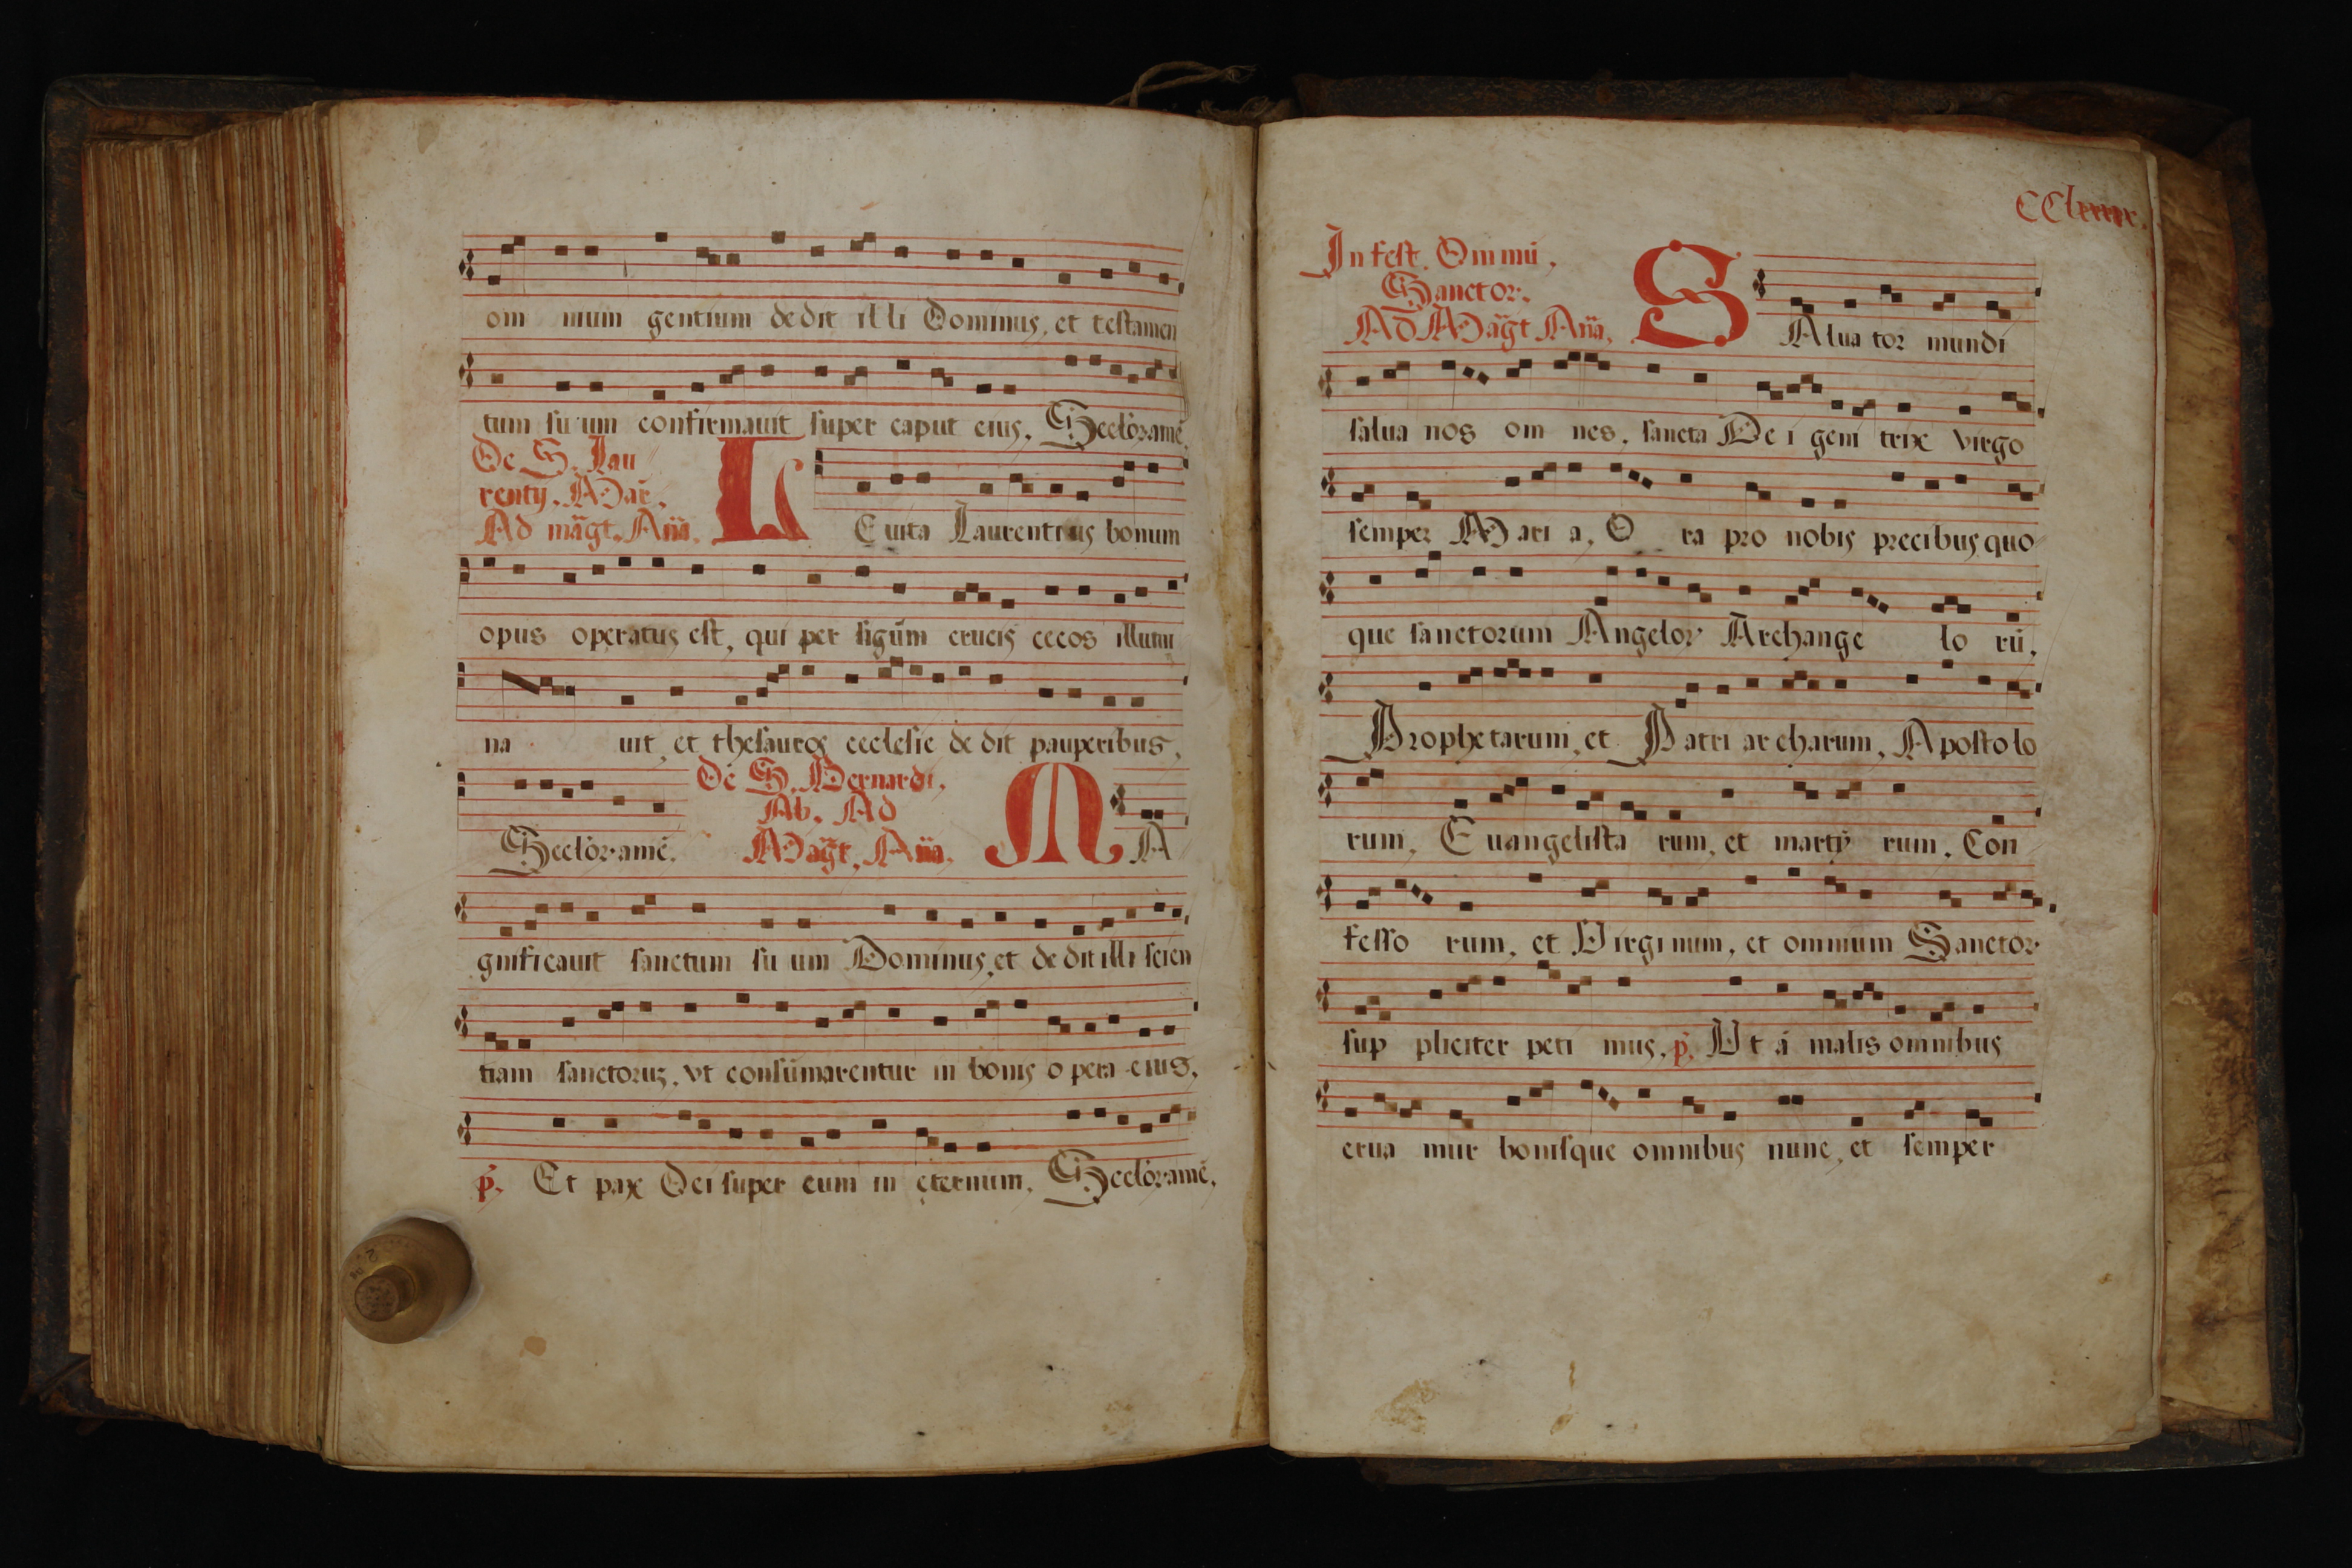 om nium gentium dedit illi Dominus, et testamen
tum suum confirmauit super caput eius. Secloramē.
De S. Lau
rentij. Mar.
Ad māgt. Aña.
LEuita Laurentius bonum
opus operatus est, qui per signū̄m crucis cecos illumi
na uit, et thesauros ecclesie dedit pauperibus,
Seclor·amē.
De S. Bernardi,
Ab. Ad
Māgt. Aña.
MA
gnificauit sanctum suum Dominus, et dedit illi scien
tiam sanctoruz, vt consūmarentur in bonis opera eius,
p. Et pax Dei super eum in eternum. Seclor·amē,
CClxxxx.
In fest. Omniū,
Sanctor.
Ad Māgt Aña.
SAluator mundi
salua nos om nes, sancta Dei geni trix virgo
semper Mari a, O ra pro nobis precibus quo
que sanctorum Angelor Archange lo rū,
Prophetarum, et Patriarcharum, Apostolo
rum, Euangelista rum, et martÿ rum, Con
fesso rum, et Virginum, et omnium Sanctor
sup pliciter peti mus, p. Vt á malis omnibus
erua mur bonisque omnibus nunc, et semper